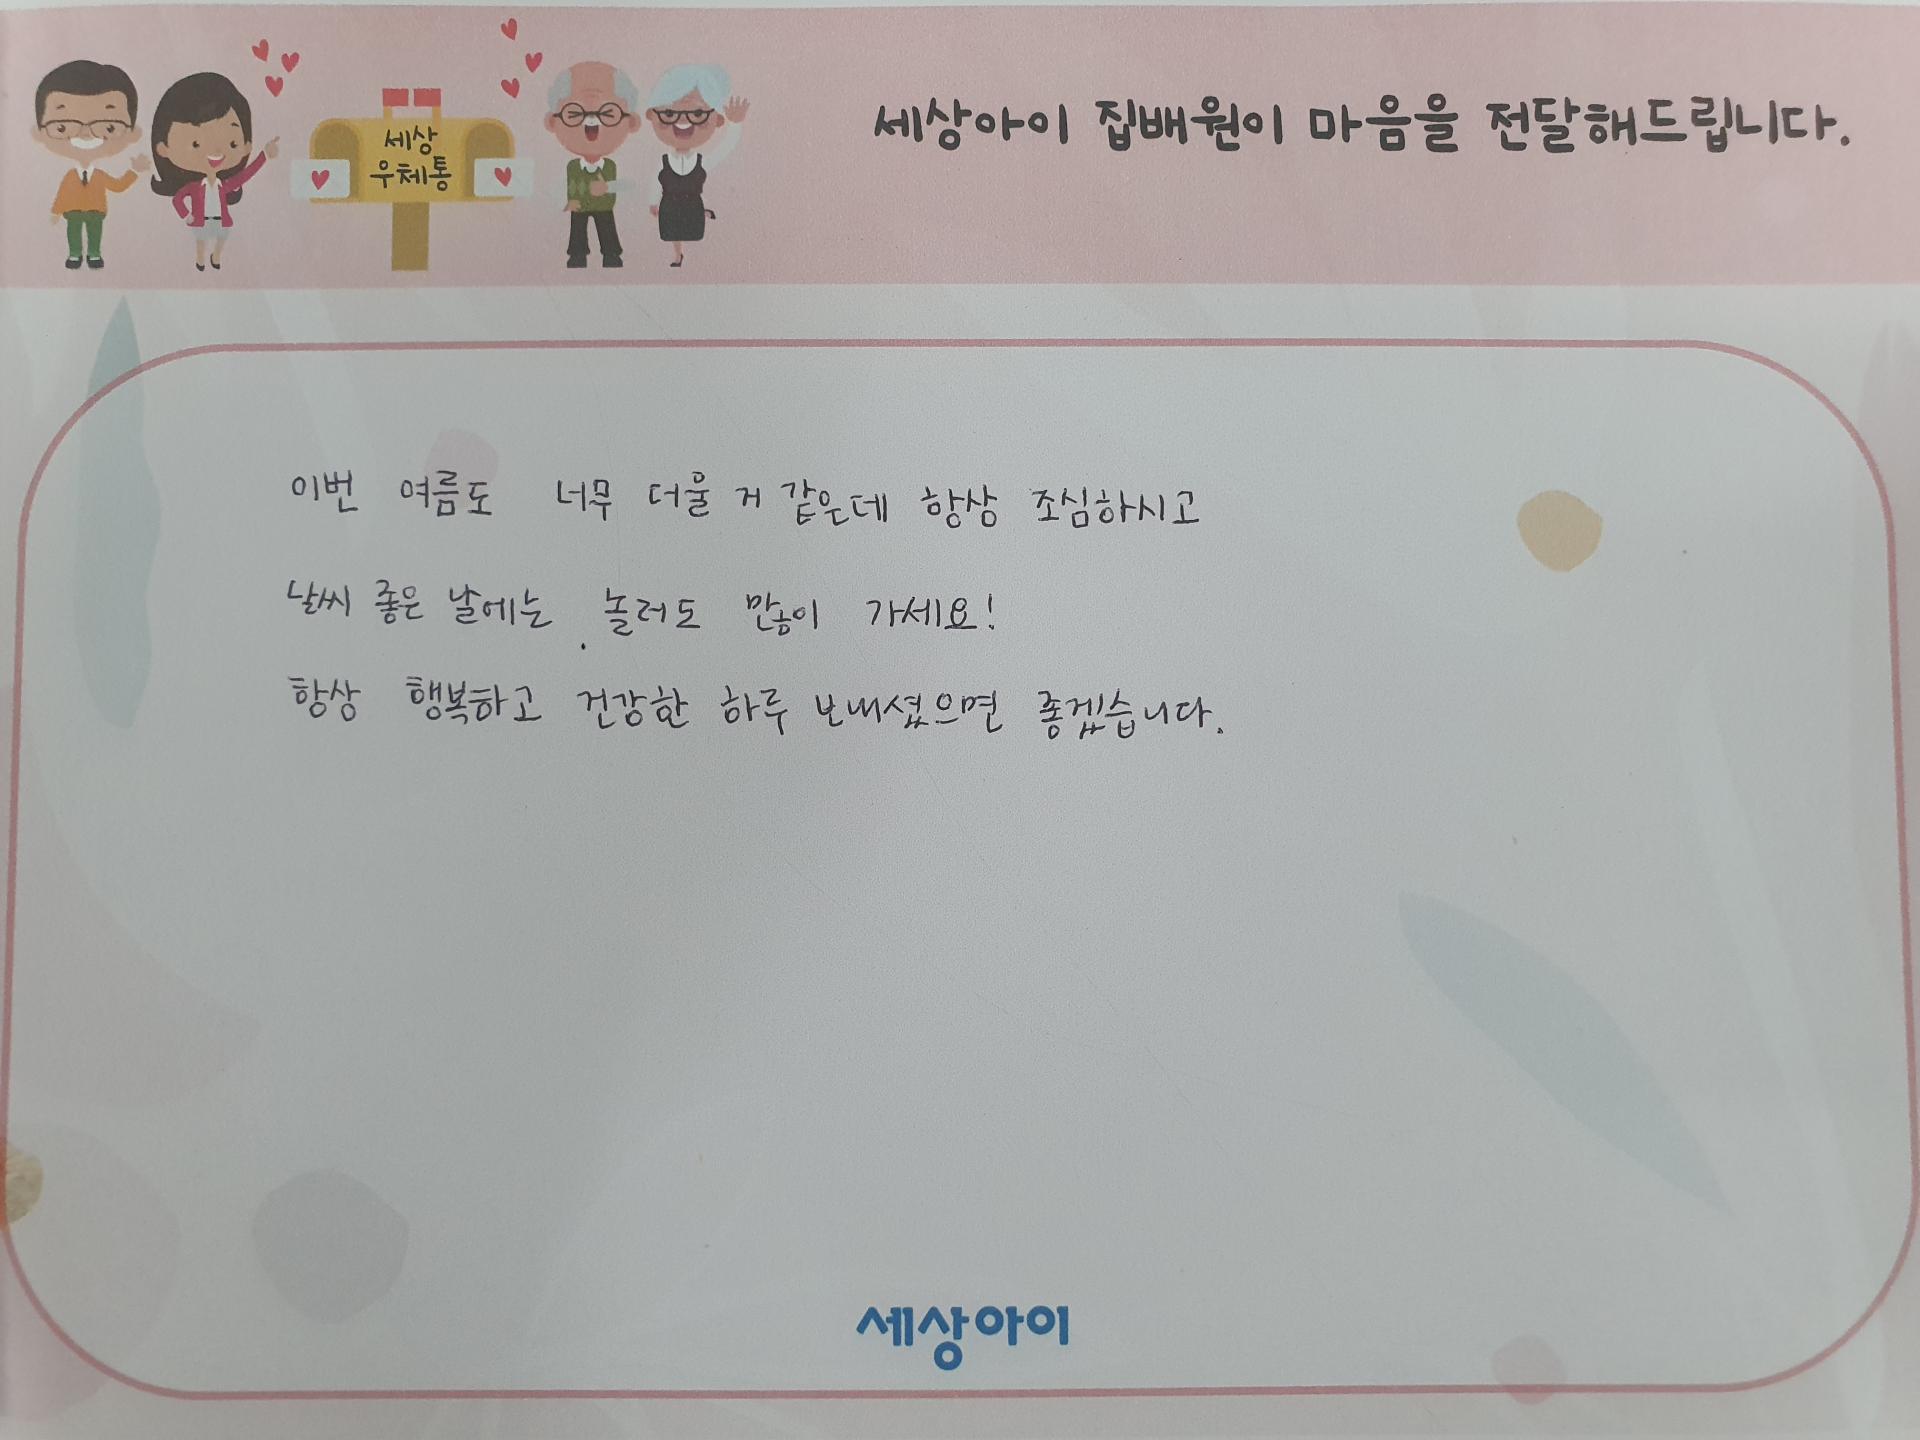 세상아이 집배원이 마음을 전달해드립니다.
세상
우체통
이번 여름도 너무 더울 거 같은데 항상 조심하시고
날씨 좋은 날에는 놀러도 많이 가세요!
항상 행복하고 건강한 하루 보내셨으면 좋겠습니다.
세상아이